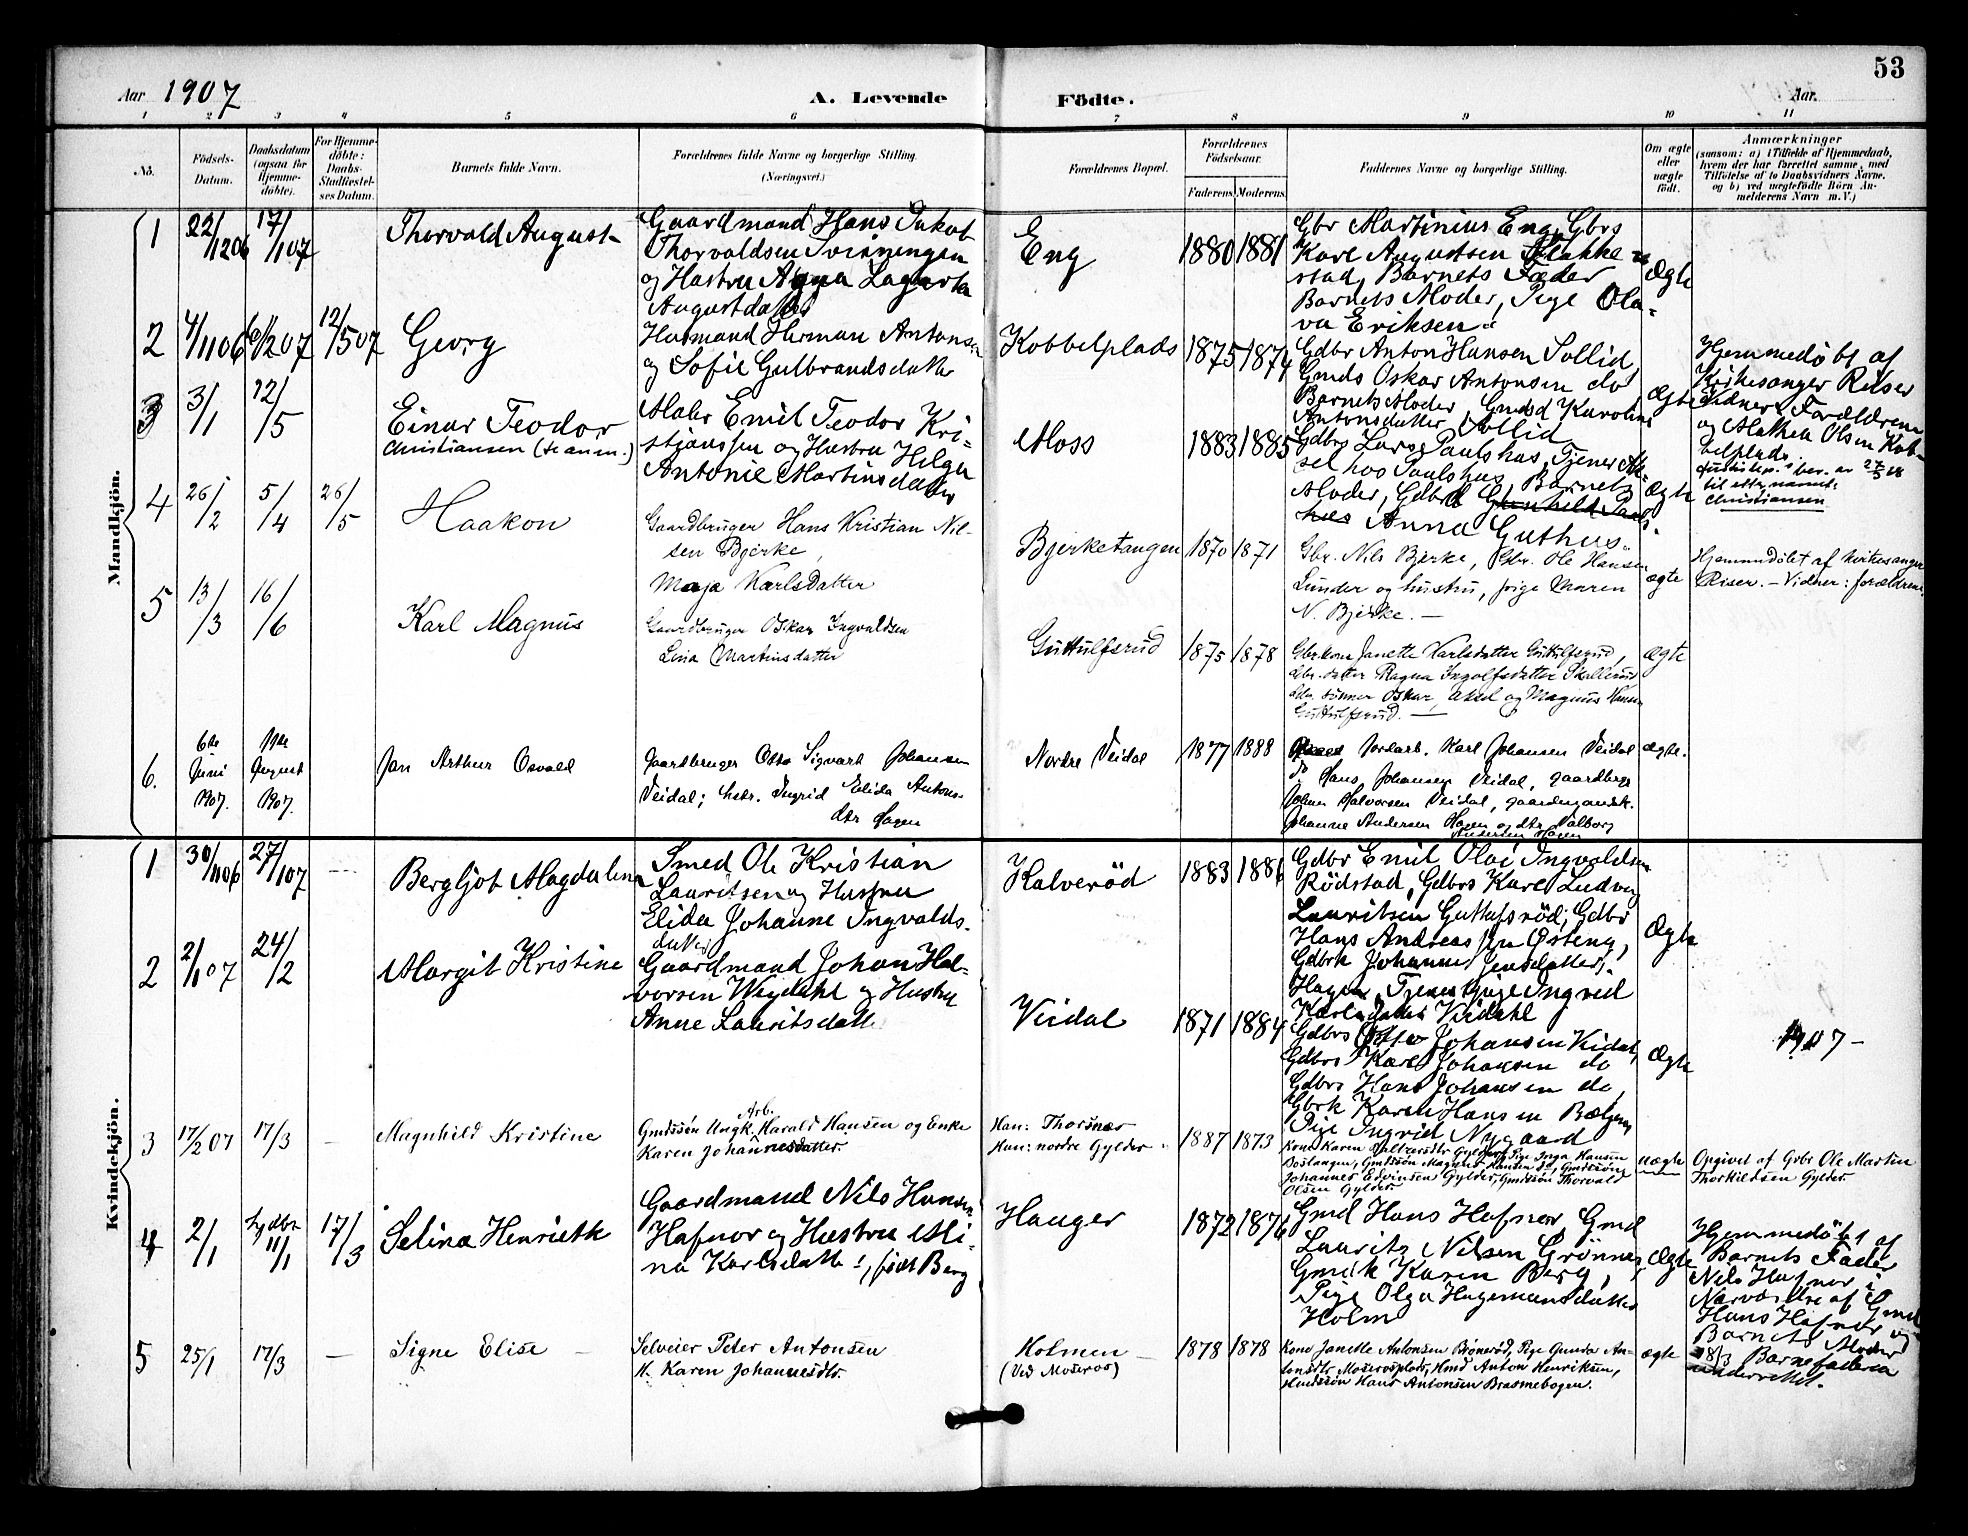 53
Aar 1907
A. Levende
Fødte.
Aar.
1 2 3 4 5 6 7 8 9 10 11
No.
Fødsels-Datum.
Daabsdatum (ogsaa for Hjemmedøbte).
For Hjemmedøbte: Daabs-Stadfæstelses Datum.
Barnets fulde Navn.
Forældrenes fulde Navne og borgerlige Stilling.
(Næringsvei.)
Forældrenes Bopæl.
Forældrenes Fødselsaar.
Faderens. Moderens.
Faddernes Navne og borgerlige Stilling.
Om ægte eller uægte født.
Anmærkninger
(saasom: a) i Tilfælde af Hjemmedaab, hvem der har forrettet samme, med Tilføielse af to Daabsvidners Navne, og b) ved uægtefødte Børn Anmelderens Navn m.V.)
Mandkjøn.
1 22/12 06 17/1 07 Thorvald August
Gaardmand Hans Jakob
Thorvaldsen Tvisningen
og Hustru Agna Lagerta
Augustdatter
Eng 1880 1881
Gbr Martinius Eng, Gbrs
Karl Augustsen
stad, Barnets Fader
Barnets Moder, Pige Ola-
va Eriksen
Ægte
2 4/11 06 6/1 07 12/5 07 Georg
Husmand Herman Antonsen
og Sofie Gulbrandsdatter
Kobbelplads 1875 1874
Gdbr Anton Hansen Sollid,
Gmds Oskar Antonsen do
Barnets Moder, Gmdsd Karoline
Antonsdatter Sollid
Ægte
Hjemmedøbt af
Kirkesanger Riiser
Vidner Forældrene
og Mathea Olsen Kob-
belplads.
3 3/1 12/5 Einar Teodor
Christiansen
Maler Emil Teodor Kri-
stjanssen og Hustru Helga
Antonie Martinsdatter
Moss 1883 1885
Gdbrs Lars Paulshus, Tjener Ak-
sel hos Paulshus, Barnets
Moder, Gdbrd Gunhild Pauls
hus Anna Guthus.
Ægte
til etternavnet:
Christiansen
4 26/2 5/4 26/5 Haakon
Gaardbruger Hans Kristian Nil-
sen Bjerke,
Maja Karlsdatter
Bjerketangen 1870 1871
Gbr. Nils Bjerke, Gbr. Ole Hansen
Lunder og hustru, pige Maren
N. Bjerke. —
ægte
Hjemmedøbt af kirkesanger
Riser. — Vidner: forældrene.
5 13/3 16/6 Karl Magnus
Gaardbruger Oskar Ingvaldsen
Lina Martinsdatter
Guttulfsrud 1875 1878
Gbr.kone Janette Karlsdatter Guttulfsrud,
Gbr. datter Ragna Ingolfsdatter Skallerud
Gbr. sønner Oskar, Aksel og Magnus Hansen
Guttulfsrud. —
Ægte
6. 6te Juni 1907. 11te August 1907. Jan Arthur Osvald
Gaardbruger Otto Sigvart Johansen
Veidal; hstr. Ingrid Elida Antons-
dtr Hagen
Nordre Veidal 1877 1888
Jordarb. Karl Johansen Veidal
do Hans Johansen Veidal, gaardbrgr
Johan Halvorsen Veidal,
Johanne Andersen Hagen og dtr Valborg
Andersen Hagen
ægte.
Kvindekjøn.
1 30/11 06 27/1 07 --- Bergljot Magdalena
Smed Ole Kristian
Lauritsen og Hustru
Elida Johanne Ingvalds-
datter
Kalverød 1883 1886
Gdbr Emil Olai Ingvaldsen
Rödstad, Gdbrs Karl Ludvig
Lauritsen Guttufsröd, Gdbr
Hans Andreas Østeng,
Gdbrk Johanne Jensdatter
Hagen, Tjenestpige Ingrid
Karlsdatter Veidahl
Ægte
2 2/1 07 24/2 Margit Kristine
Gaardmand Johan Hal-
vorsen Weydahl og Hustru
Anne Lauritsdatter
Veidal 1871 1884
Gdbrs Otto Johansen Veidal,
Gdbrs Karl Johansen do
Gdbrs Hans Johansen do,
Gbrk Karen Hansen
Pige Ingrid Nygaard
Ægte
1907 —
3 17/2 07 17/3 — Magnhild Kristine
Gmdssön Ungk. Arb. Harald Hansen og Enke
Karen Johannesdatter.
Han: Thorsnæs
Hun: nordre Gylder 1887 1873
Kone Karen Gylder, Pige Inga Hansen
Bostangen, Gmdssøn Magnus Hansen do, Gmdssøn
Johannes Edvinsen Gylder, Gmdssøn Thorvald
Olsen Gylder.
uægte
Opgivet af Gbr Ole Martin
Thorkildsen Gylder.
4 2/1 hjdbt 11/1 17/3 Selina Henriette
Gaardmand Nils Hansen
Hafnor og Hustru Mi-
na Karlsdatter, født Berg
Hauger 1872 1876
Gmd Hans Hafnor, Gmd
Lauritz Nilsen Grønnes,
Gmdk Karen Berg,
Pige Olga Hagemansdatter
Holm
Ægte
Hjemmedøbt af
Barnets Fader
Nils Hafnor i
Nærværelse af Gmd
Hans Hafnor og
Barnets Moder
18/3 Barnefaderen
underrettet.
5 25/1 17/3 — Signe Elise —
Selveier Peter Antonsen
H. Karen Johannesdtr.
Holmen —
(Ved Moseros) 1878 1878
Kone Janette Antonsen Brønerød, Pige Gunda An-
tonsdtr Moserosplads, Hmd Anton Henriksen,
Hmdssøn Hans Antonsen Brasmebogen.
ægte